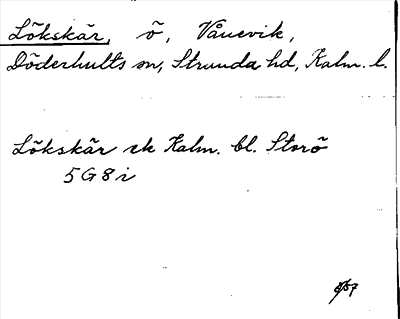 Lökskär, ö, Vånevik,
Döderhults sn, Stranda hd, Kalm. l.
Lökskär ek Kalm. bl. Storö
5G8i